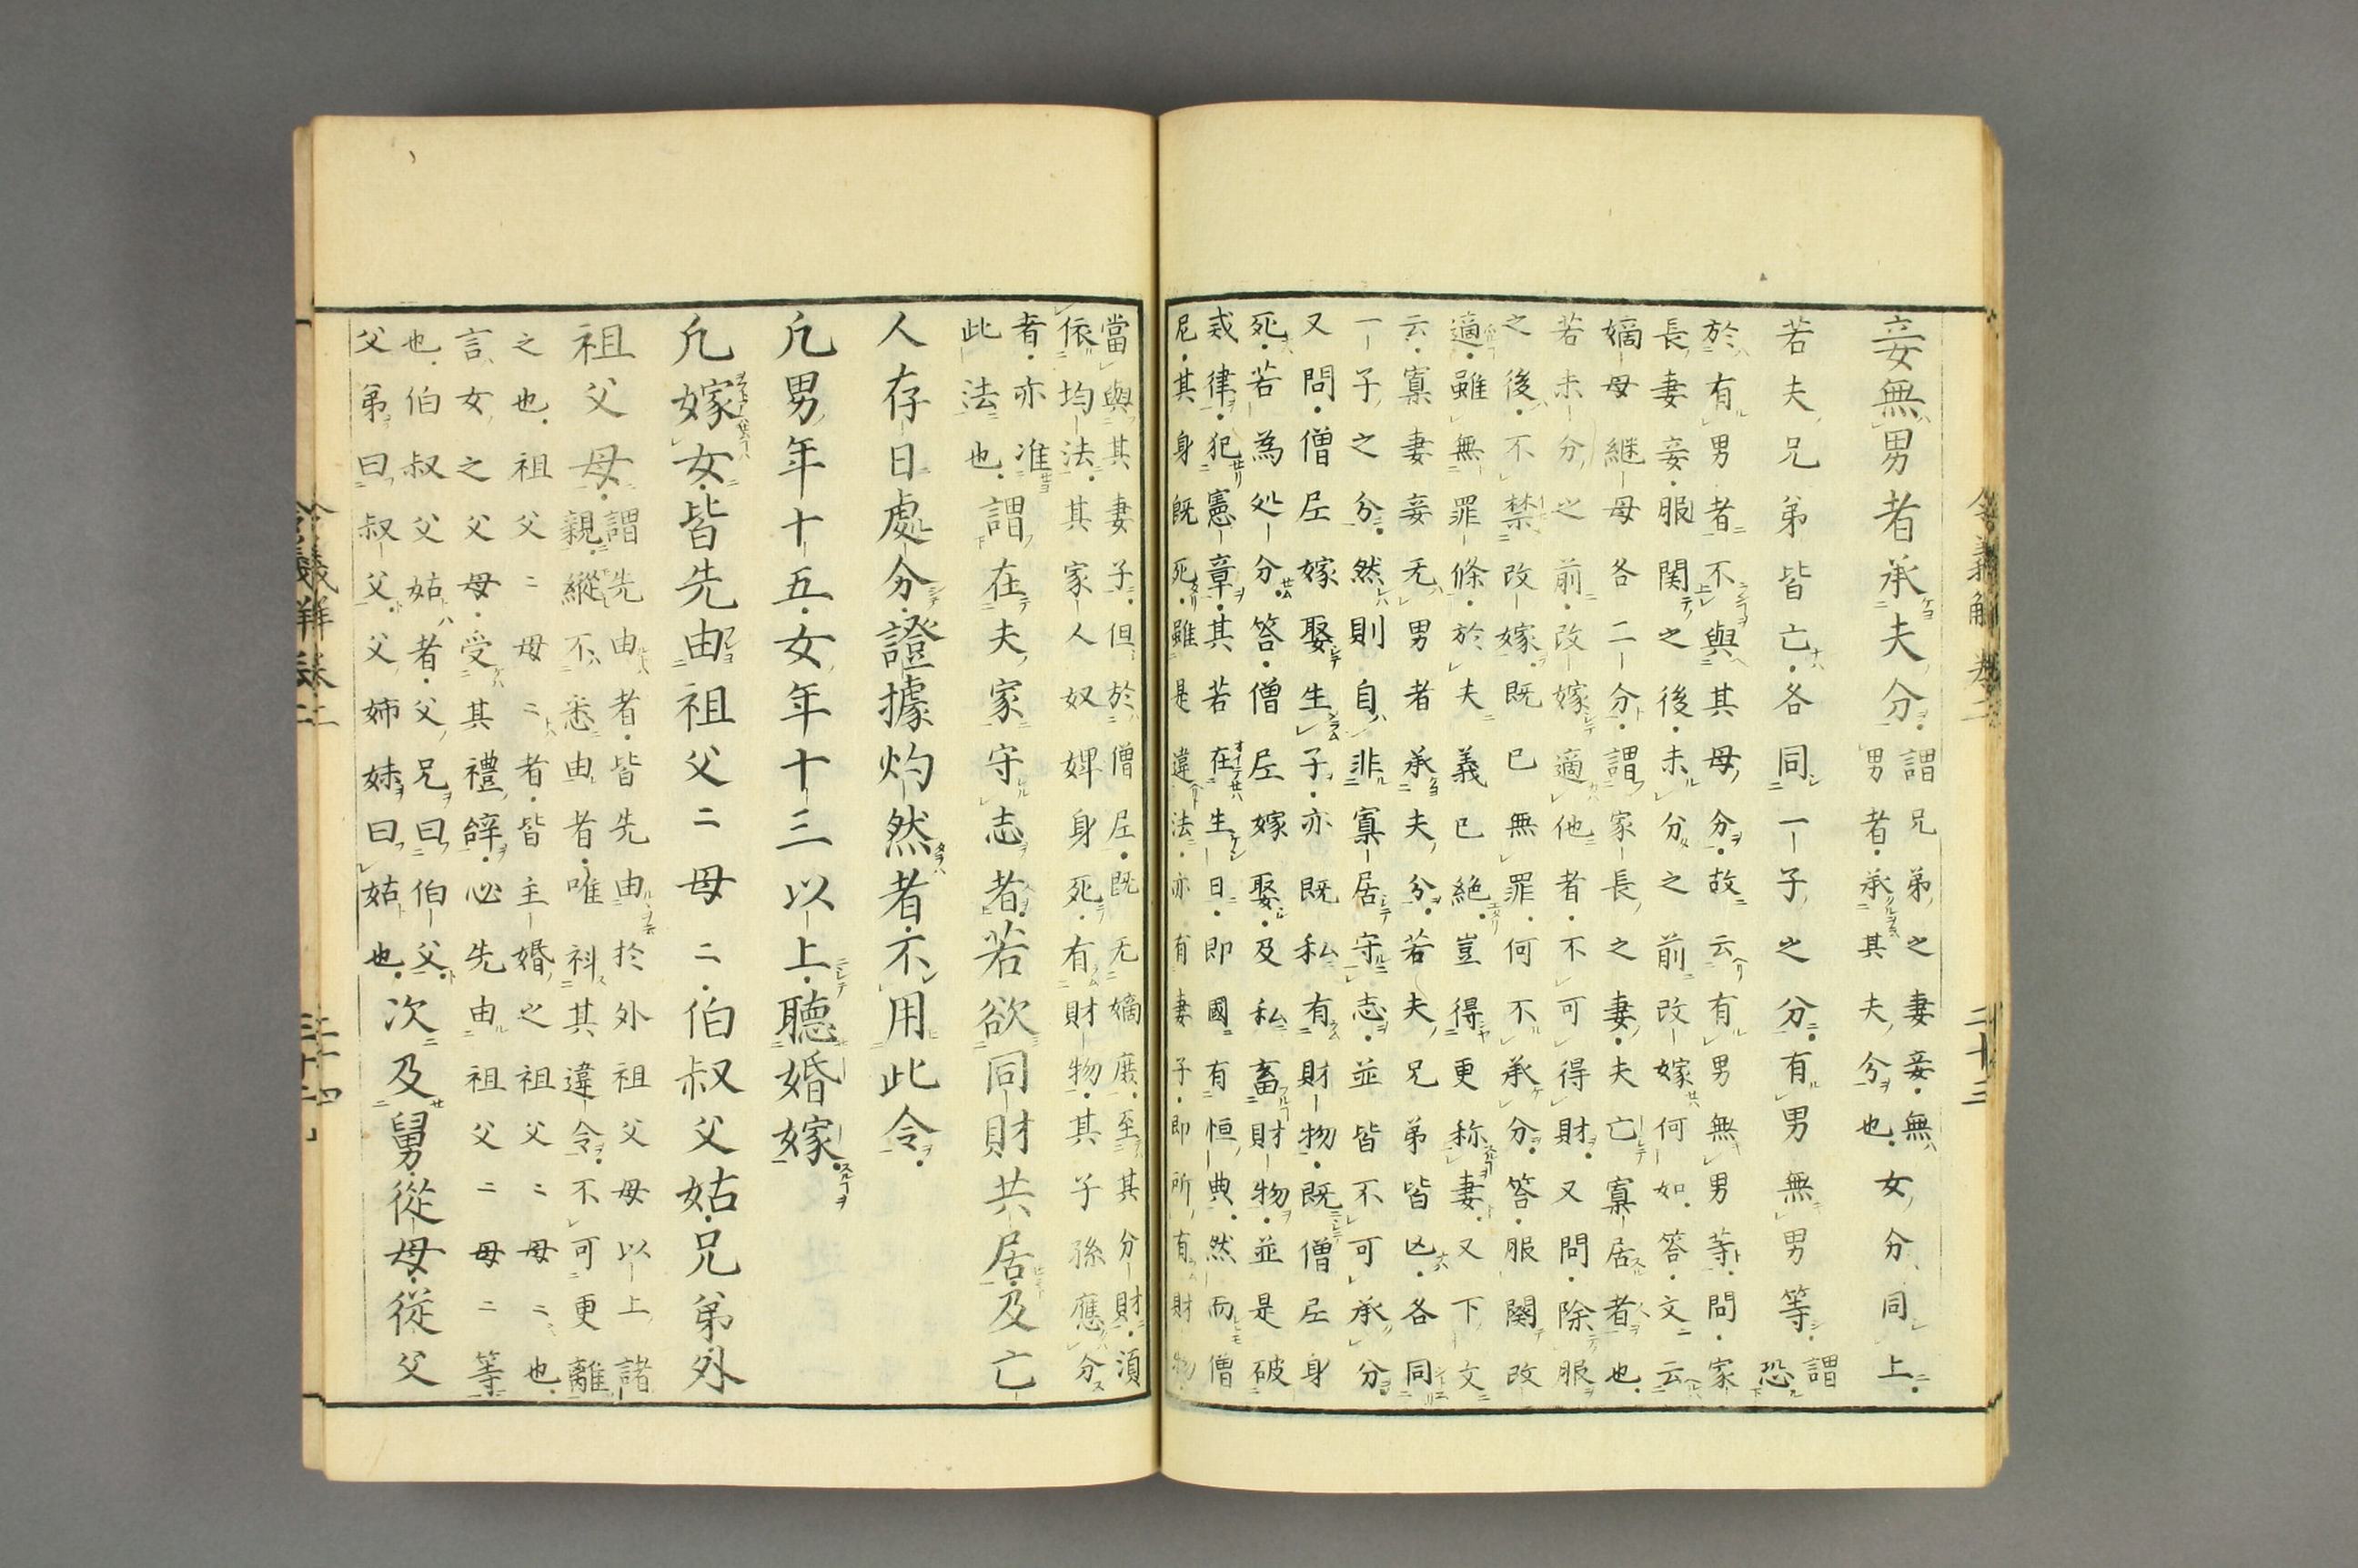 令義解 卷二 二十三
妾無男者承夫分
謂兄弟之妻妾無
男者承其夫分也
女分同上
若夫兄弟皆亡各同一子之分有男無男等
謂
恐
於有男者不與其母分故云有男無男等問家
長妻妾服関之後未分之前改嫁何如答文云
嫡母継母各二分謂家長之妻夫亡寡居者也
若未分之前改嫁適他者不可得財又問除服
之後不禁改嫁既已無罪何不承分答服関改
適雖無罪條於夫義已絶豈得更称妻又下文
云寡妻妾无男者承夫分若夫兄弟皆亾各同
一子之分然則自非寡居守志並皆不可承分
又問僧尼嫁娶生子亦既私有財物既僧尼身
死若為処分答僧尼嫁娶及私畜財物並是破
戒律犯憲章其若在生日即國有恒典然而僧
尼其身既死雖是違法亦有妻子即所有財物
當與其妻子但於僧尼既无嫡庶至其分財湏
依均法其家人奴婢身死有財物其子孫應分
者亦准
此法也
謂在夫家守志者若欲同財共居及亡
人存日處分證據灼然者不用此令
凢男年十五女年十三以上聽婚嫁
凢嫁女皆先由祖父二母二伯叔父姑兄弟外
祖父母
謂先由者皆先由於外祖父母以上諸
親縱不悉由者唯科其違令不可更離
之也祖父二母二者皆主婚之祖父二母二也
言女之父母受其禮辭必先由祖父二母二等
也伯叔父姑者父兄曰伯父
父弟曰叔父父姉妹曰姑也
次及舅從母從父